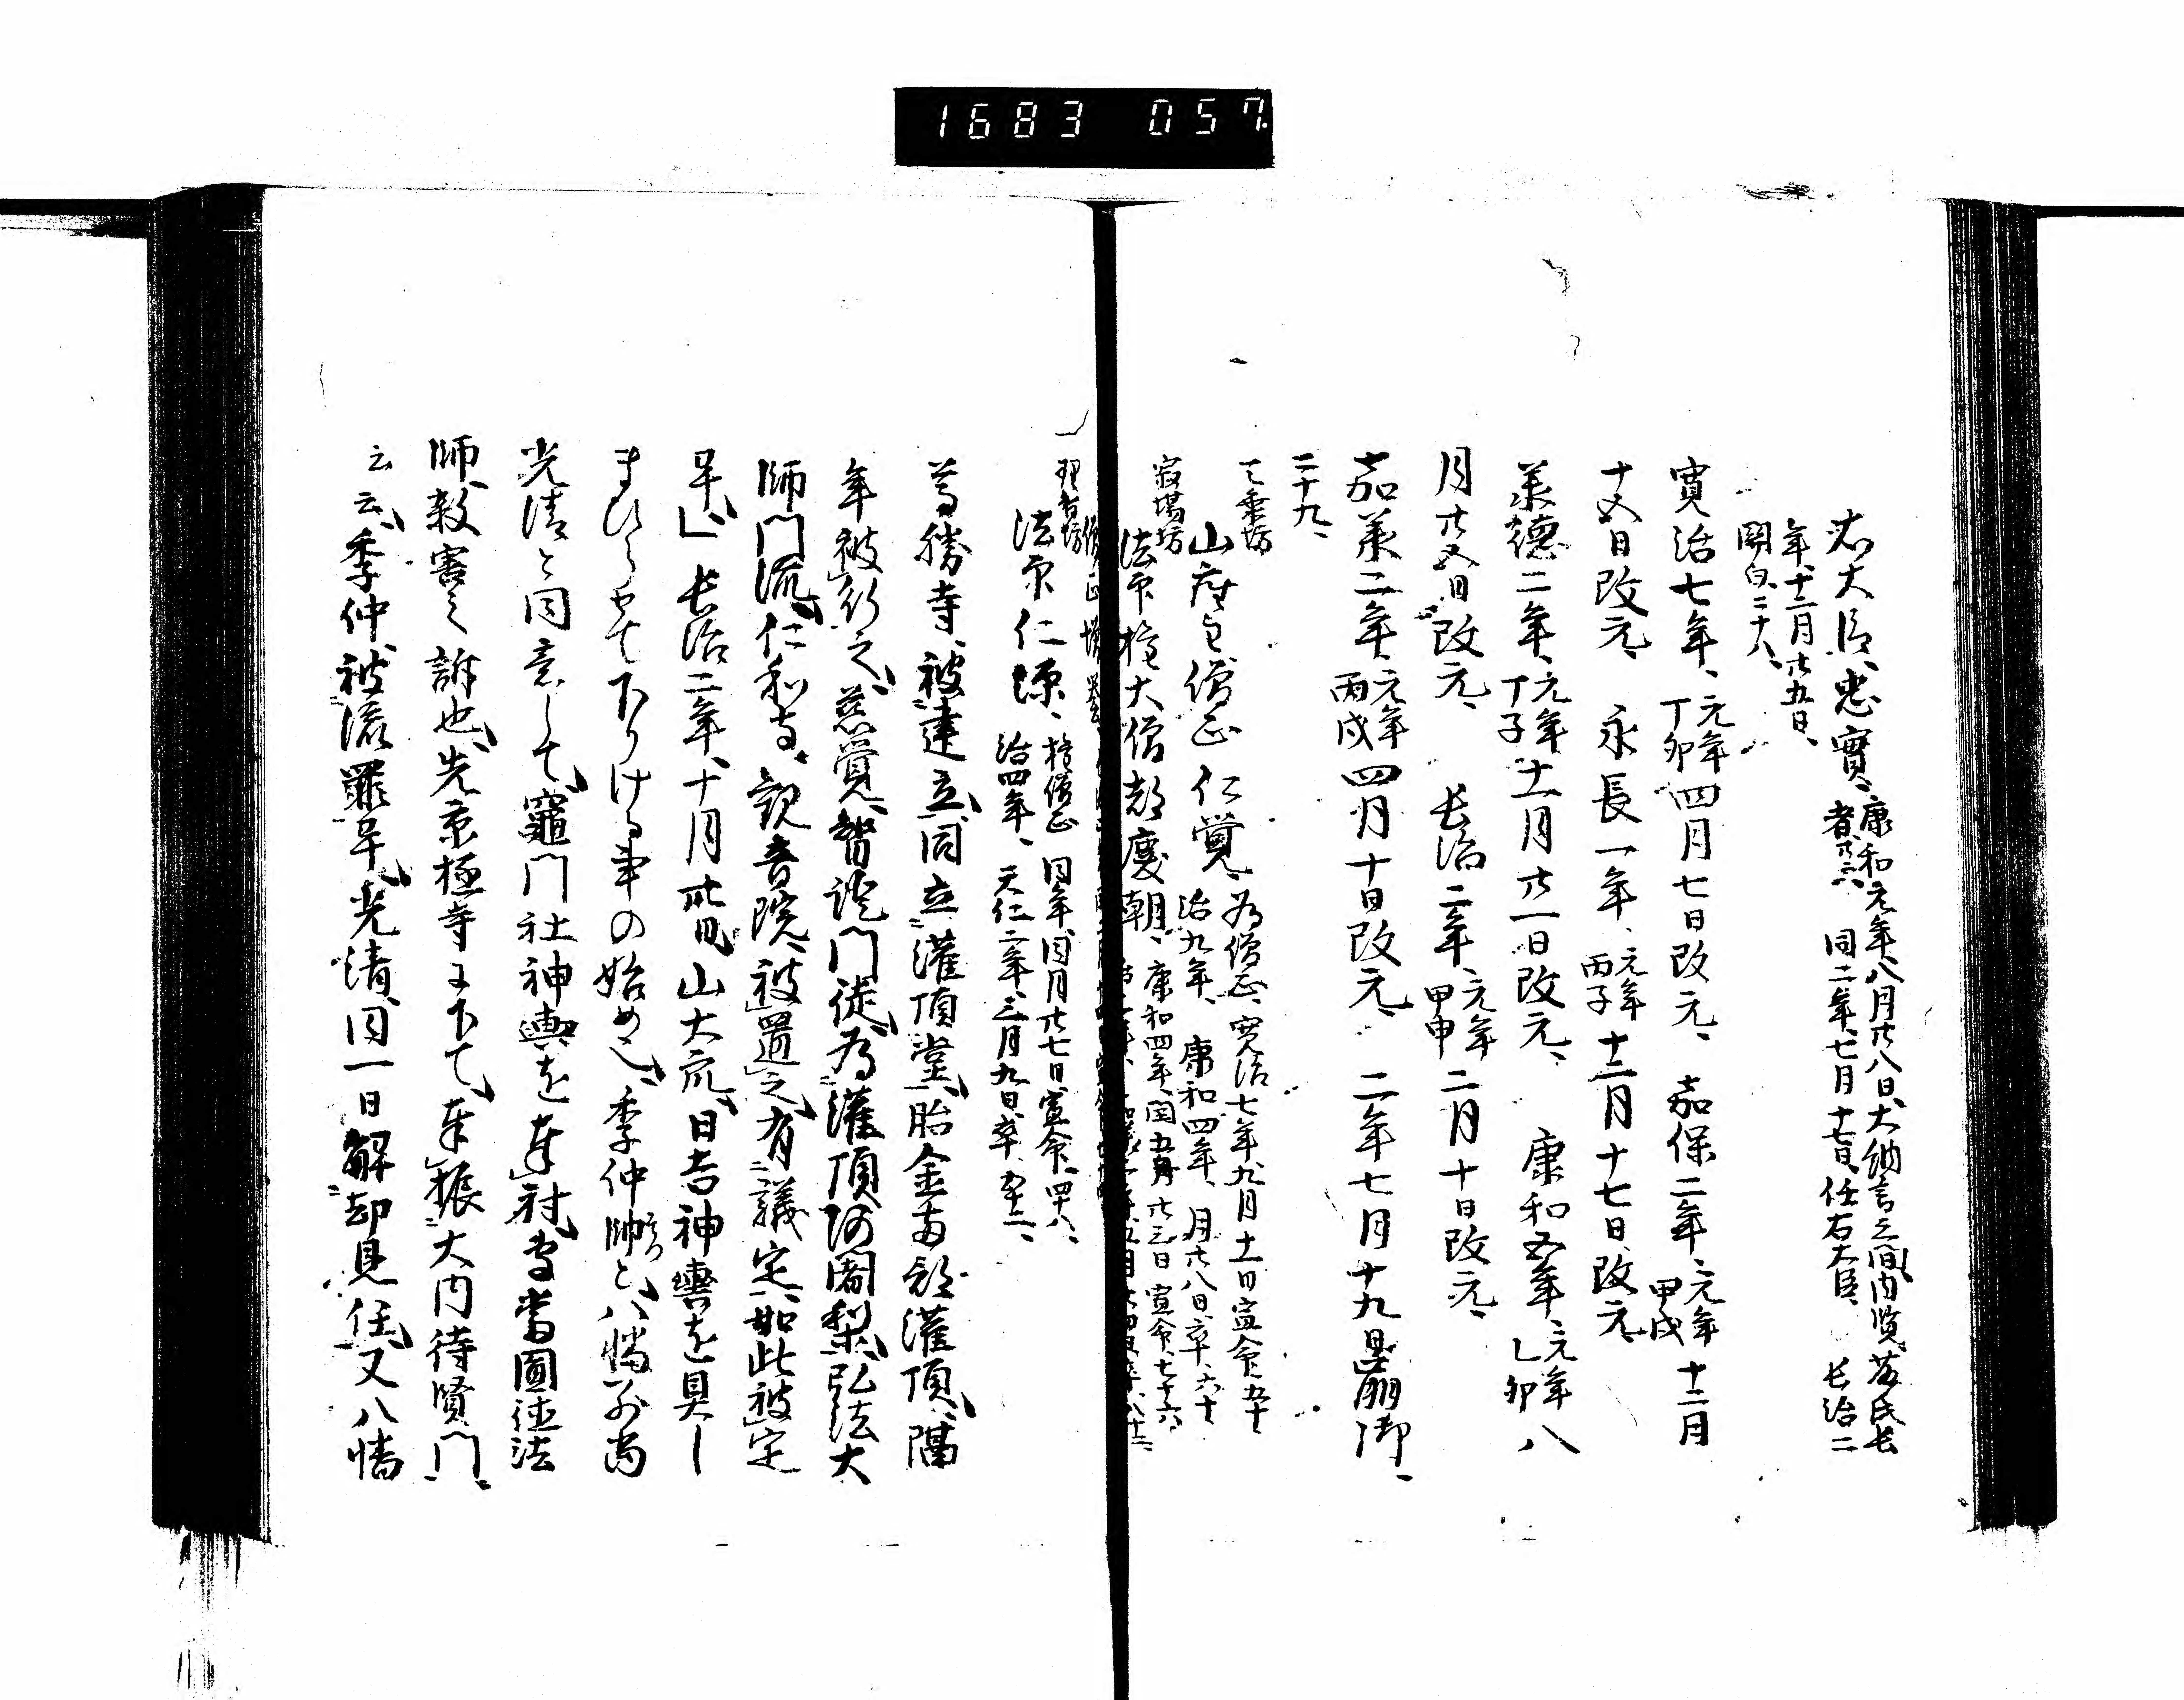 1683 057.
右大臣忠實、康和元年八月廿八日、大納言之間内覧、藤氏長
者、廿二、同二年、七月十七日、任右大臣、長治二
年十二月廿五日、
關白、二十八、
寛治七年、元年丁卯四月七日改元、嘉保二年、元年甲戌十二月
十五日改元、永長一年、元年丙子十二月十七日改元、
承德二年、元年丁子十一月廿一日改元、康和五年、元年乙卯八
月廿八日改元、長治二年、元年甲申二月十日改元、
嘉承二年、元年丙戌四月十日改元、二年七月十九日崩御、
二十九、
山座主僧正仁覺、為僧正、寛治七年九月十一日宣命、五十
治九年、康和四年、月廿八日、卒、六十
寂場坊
法印權大僧都慶朝、康和四年、閏五月廿三日宣命、七十六、
理智坊
法印仁源、權僧正 同年、同月廿七日、宣命、四十八、
治四年、天仁二年、三月九日卒、五十二、
尊勝寺、被建立、同立灌頂堂、胎金両部灌頂、隔
年被行之、慈覺智證門徒、為灌頂阿闍梨、弘法大
師門流、仁和寺、觀音院、被置之、有議定、如此被定
畢、長治二年、十月卅日、山大衆、日吉神輿を具し
まひらせて下りける事の始め也、季仲帥と、八幡別當
光清と同意して、竈門社神輿を奉射、當圓德法
師、殺害之訴也、先京極寺に下て、奉振大内待賢門、
云云、季仲、被流罪畢、光清、同一日解却見任、又八幡